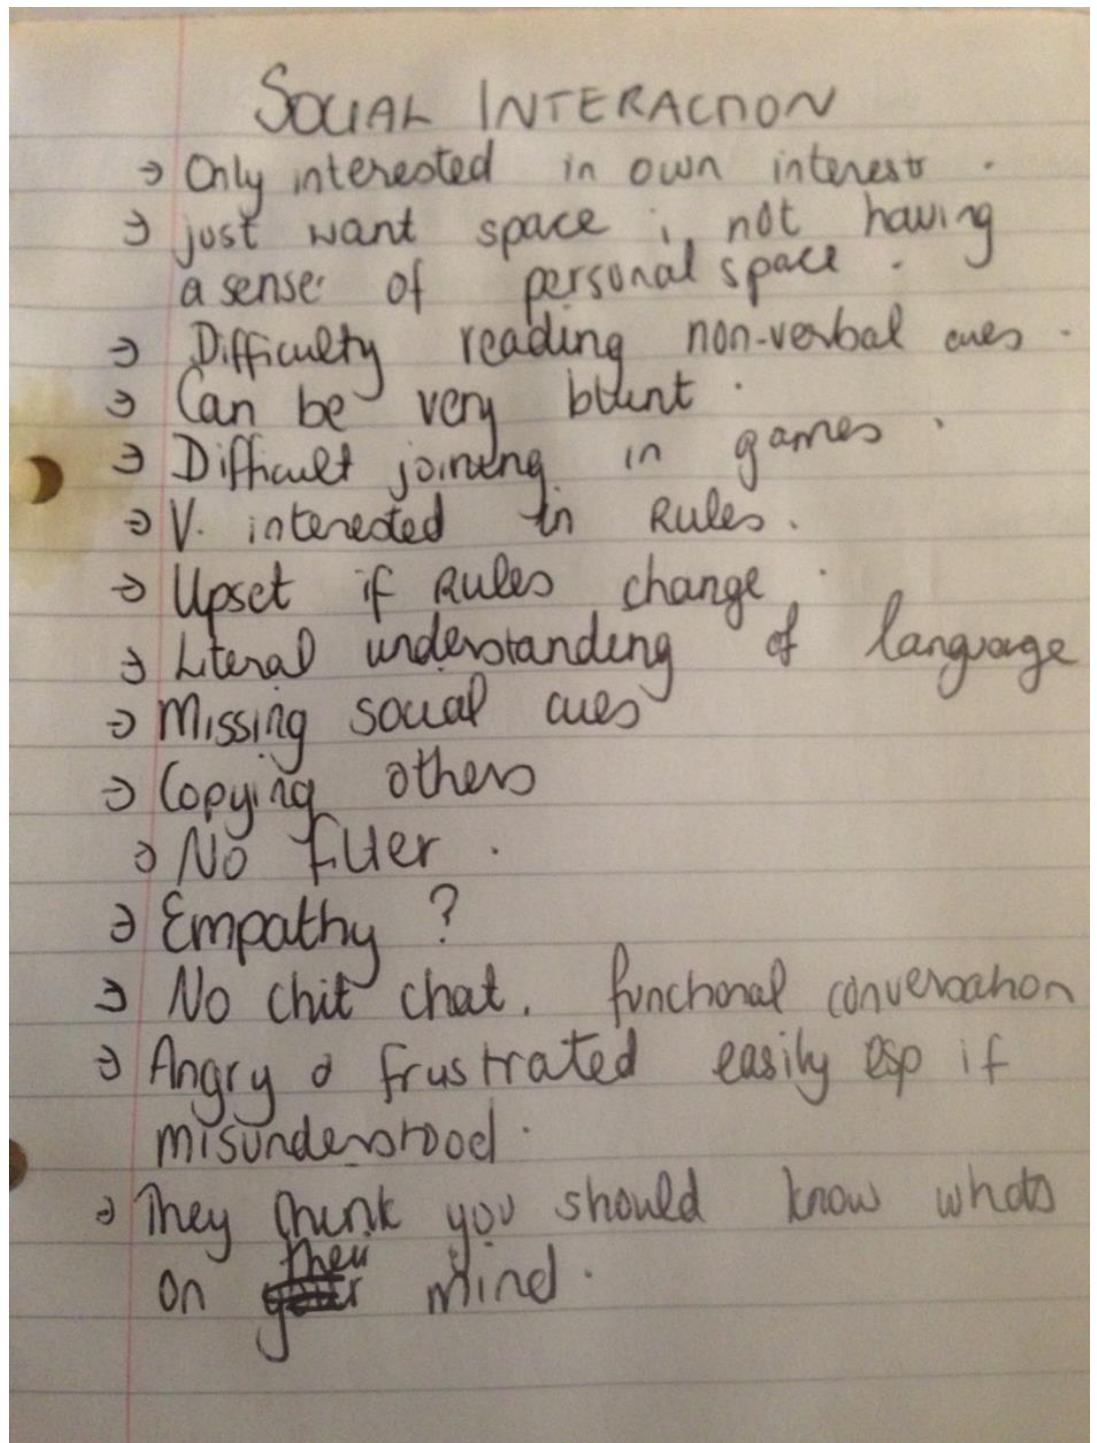 SOCIAL INTERACTION
→ Only interested in own interests.
→ just want space ; not having
a sense of personal space.
→ Difficulty reading non-verbal cues.
→ Can be very blunt.
→ Difficult joining in games.
→ V. interested in Rules.
→ Upset if Rules change.
→ Literal understanding of language
→ Missing social cues
→ Copying others
→ No filter.
→ Empathy ?
→ No chit chat. functional conversation
→ Angry & frustrated easily esp if
misunderstood.
→ They think you should know whats
on their mind.